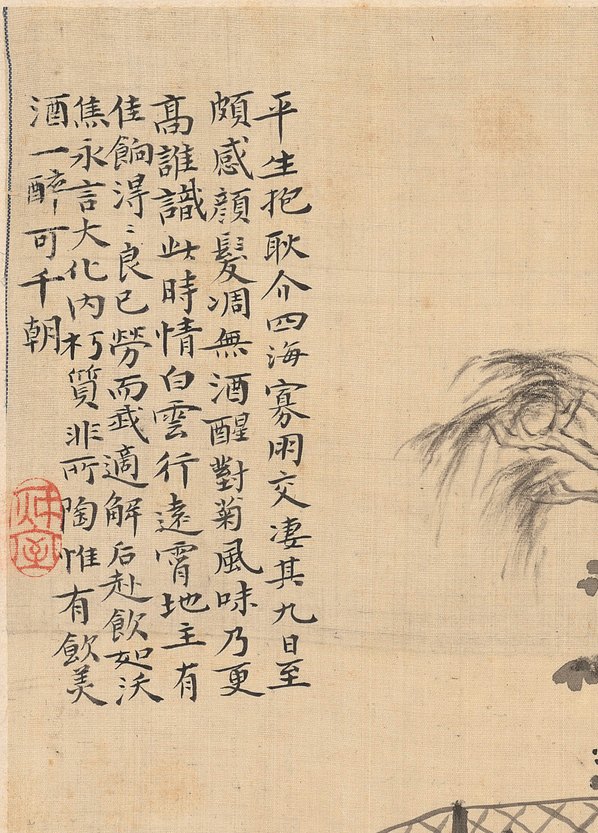 平生抱耿介四海寡朋交凄其九日至
頗感顔髮凋無酒醒對菊風味乃更
高誰識此時情白雲行遠霄地主有
佳餉得〻良已勞而我適解后赴飲如沃
焦永言大化内朽質非所陶惟有飲美
酒一醉可千朝